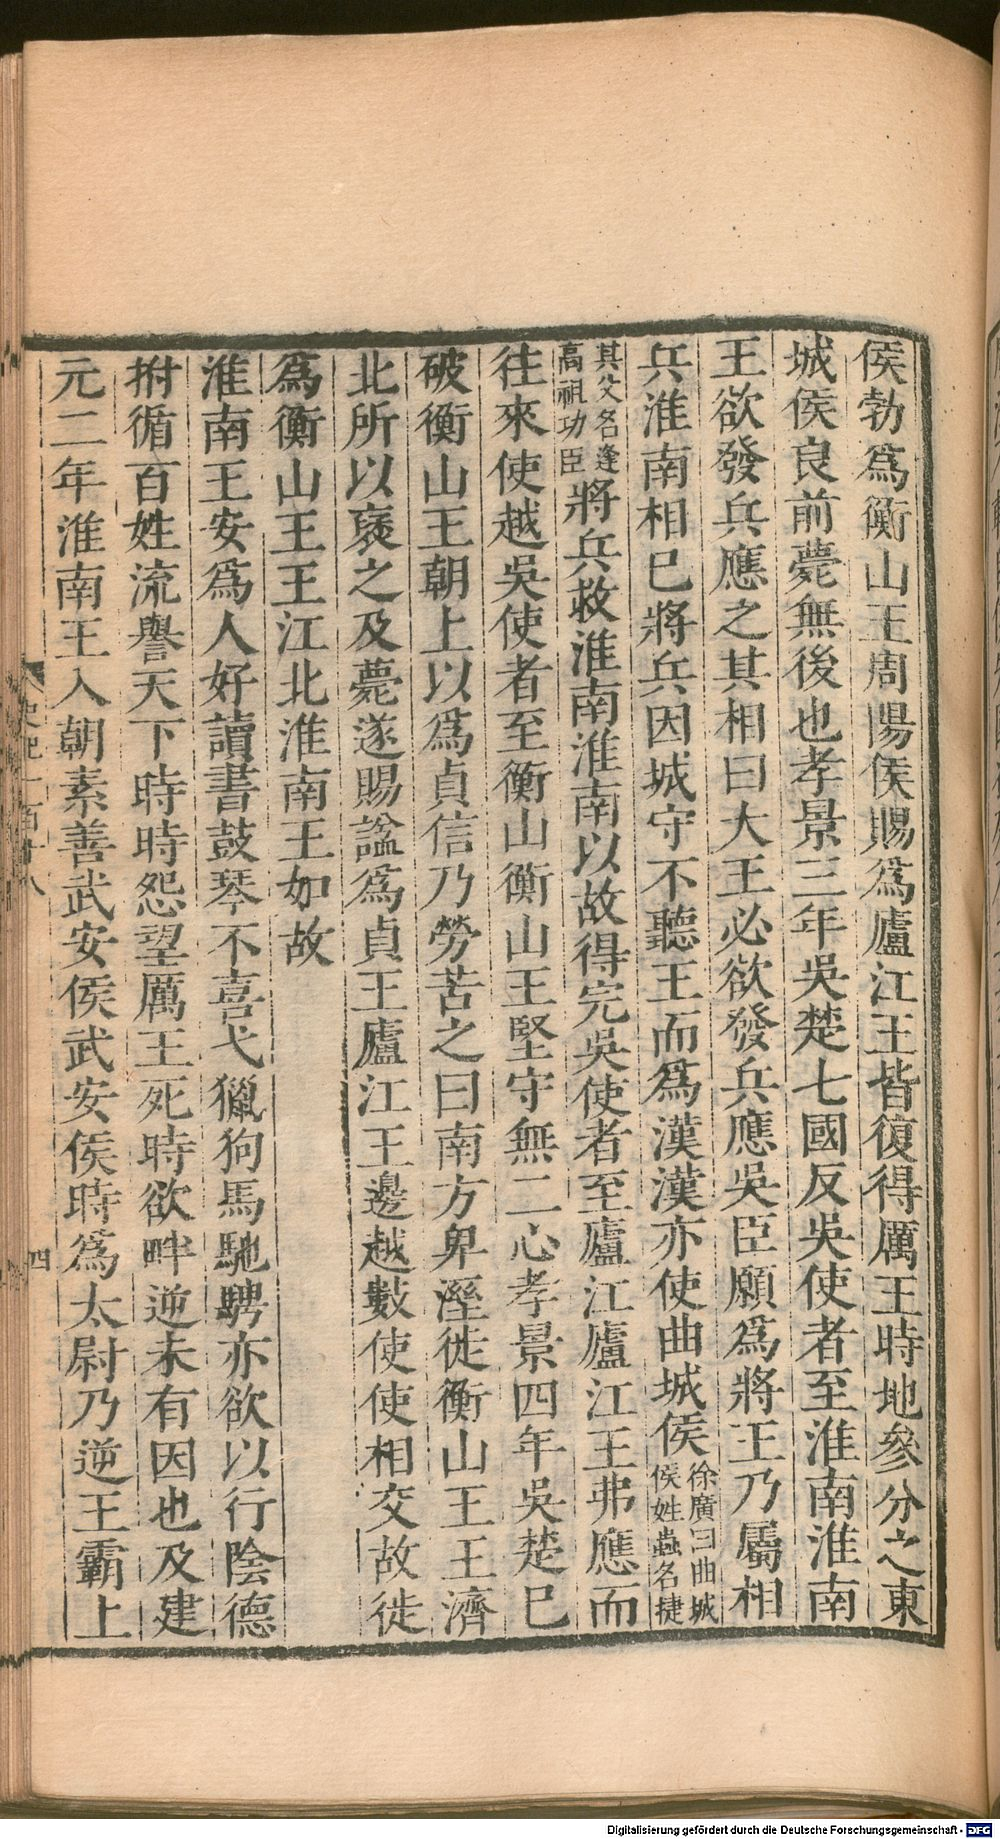 侯勃爲衡山王周陽侯賜爲廬江王皆復得厲王時地參分之東
城侯良前薨無後也孝景三年吳楚七國反吳使者至淮南淮南
王欲發兵應之其相曰大王必欲發兵應吳臣願爲將王乃屬相
兵淮南相已將兵因城守不聽王而爲漢漢亦使曲城侯徐廣曰曲城侯姓蟲名捷
其父名逢高祖功臣將兵救淮南淮南以故得完吳使者至廬江廬江王弗應而
往來使越吳使者至衡山衡山王堅守無二心孝景四年吳楚已
破衡山王朝上以爲貞信乃勞苦之曰南方卑溼徙衡山王王濟
北所以襃之及薨遂賜諡爲貞王廬江王邊越數使使相交故徙
爲衡山王王江北淮南王如故
淮南王安爲人好讀書鼓琴不喜弋獵狗馬馳騁亦欲以行陰德
拊循百姓流譽天下時時怨望厲王死時欲畔逆未有因也及建
元二年淮南王入朝素善武安侯武安侯時爲太尉乃逆王霸上
四
Digitalisierung gefördert durch die Deutsche Forschungsgemeinschaft - DFG